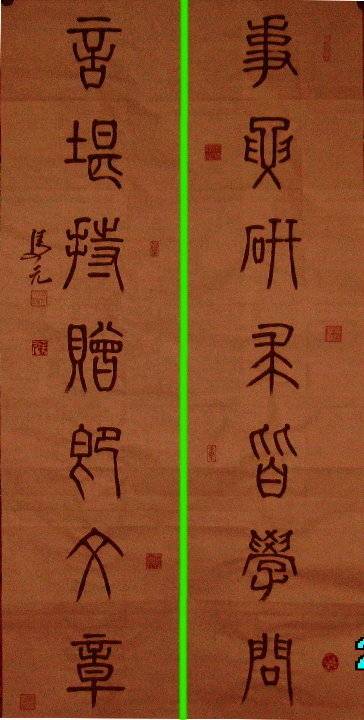 事研求皆學問
言堪持贈即文章
馬元